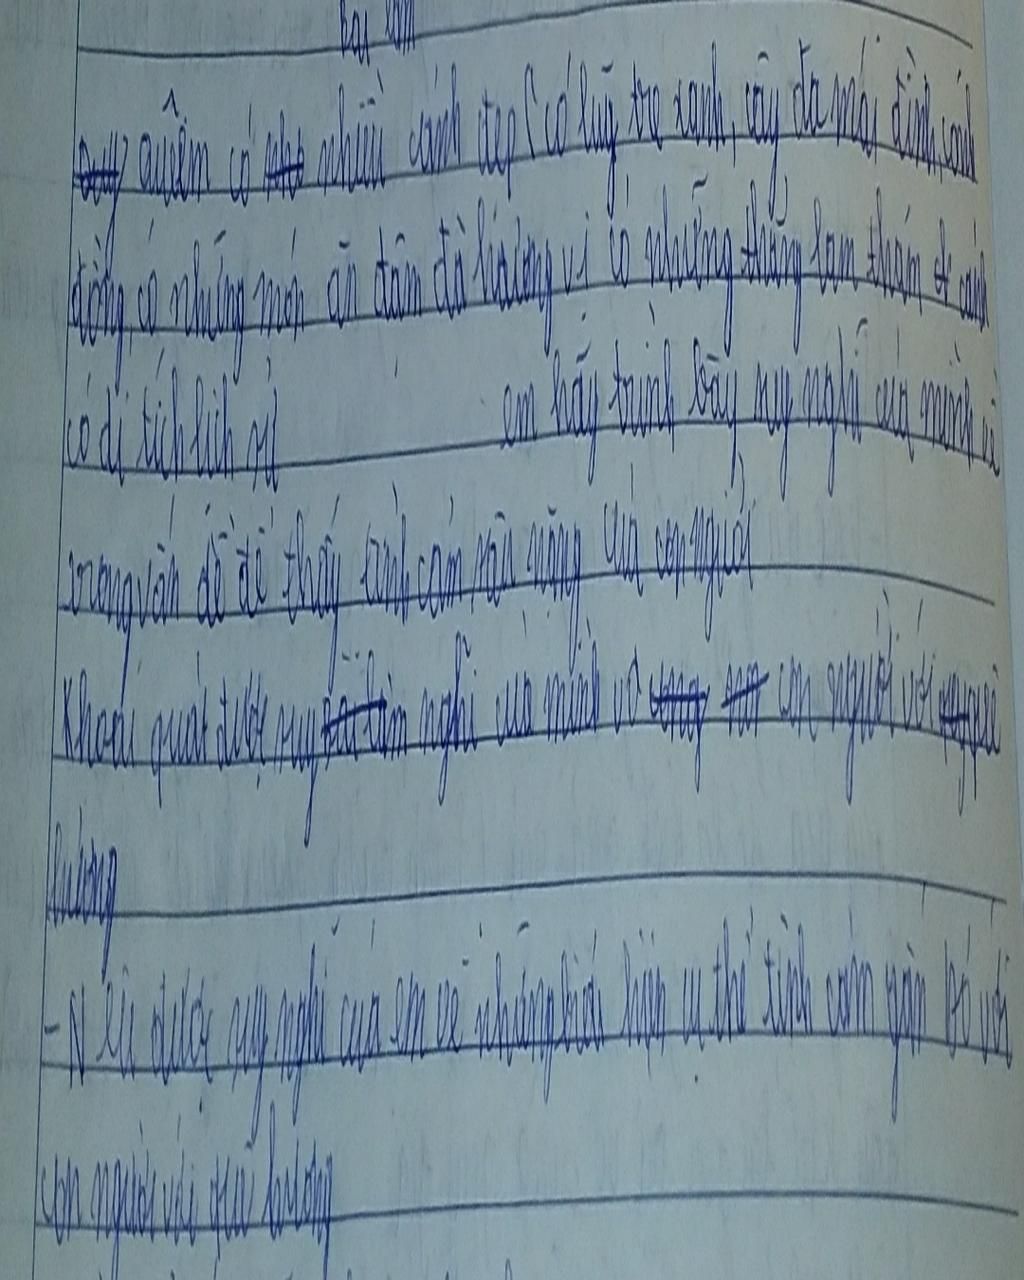 Bài làm
Quê em có nhiều cảnh đẹp (có luỹ tre xanh, cây đa mái đình, cánh
đồng, có những món ăn đậm đà hương vị có những thắng lam thắm cảnh
có di tích lịch sử em hãy trình bày suy nghĩ của mình về
trong vấn đề để thấy tình cảm sâu nặng của con người
Khoái quát được suy nghĩ của mình về con người với quê
hương
- Nêu được suy nghĩ của em về những biểu hiện cụ thể tình cảm gắn bó với
con người với quê hương